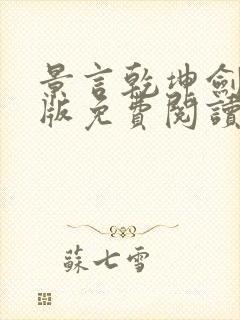 景言乾坤劍
版免費閱讀
蘇七雪